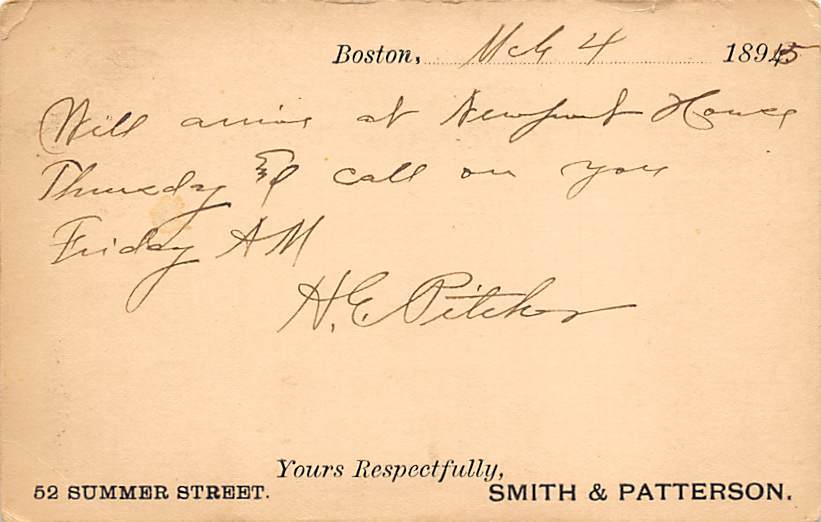 Boston, Mch 4 1895
Will arrive at Newport House
Thursday & call on you
Friday AM
H. E. Pitcher
Yours Respectfully,
52 SUMMER STREET. SMITH & PATTERSON.